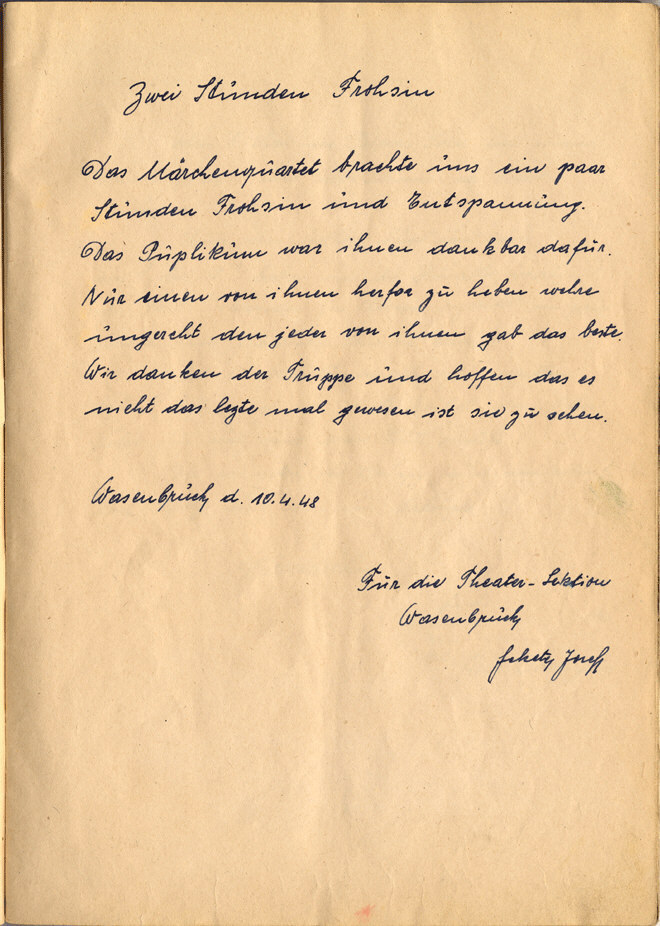 Zwei Stunden Frohsin
Das Märchenquartet brachte uns ein paar
Stunden Frohsin und Entspannung.
Das Puplikum war ihnen dankbar dafür.
Nur einen von ihnen herfor zu heben wehre
ungerecht den jeder von ihnen gab das beste.
Wir danken der Truppe und hoffen das es
nicht das lezte mal gewesen ist sie zu sehen.
Wasenbrück d. 10.4.48
Für die Theater-Sektion
Wasenbrück
Josef